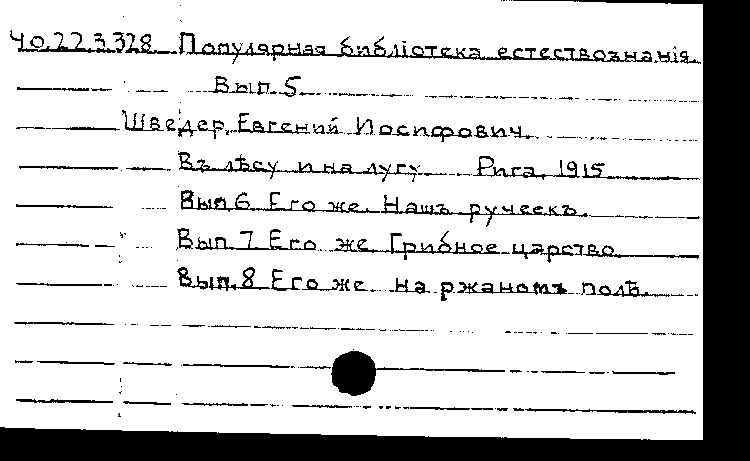 40.22.3.328. Популярная библіотека естествознанія.
Вып. 5.
Шведер, Евгений Иосифович.
Въ лѣсу и на лугу. Рига, 1915
Вып. 6 Его же. Нашъ ручеекъ.
Вып. 7 Его же. Грибное царство.
Вып. 8 Его же на ржаномъ полѣ.